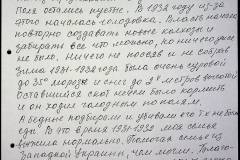 Поля остались пустые. В 1932 году из-за
этого началась голодовка. Власть начала
повторно создавать новые колхозы и
забирать все что можно, но ничего уже
не было. Ничего не посеяв и не собрав
Зима 1931-1932 года была очень суровой
до 35° морозы и снег до 2х метров высотой
Оставшийся скот нечем было кормить
и он ходил голодным по полям.
А бедные подбирали и убивали его т.к. не было
еды. В это время 1931-1932 моя семья
выжила нормально. Помогал
Западной Украины, чем могли.